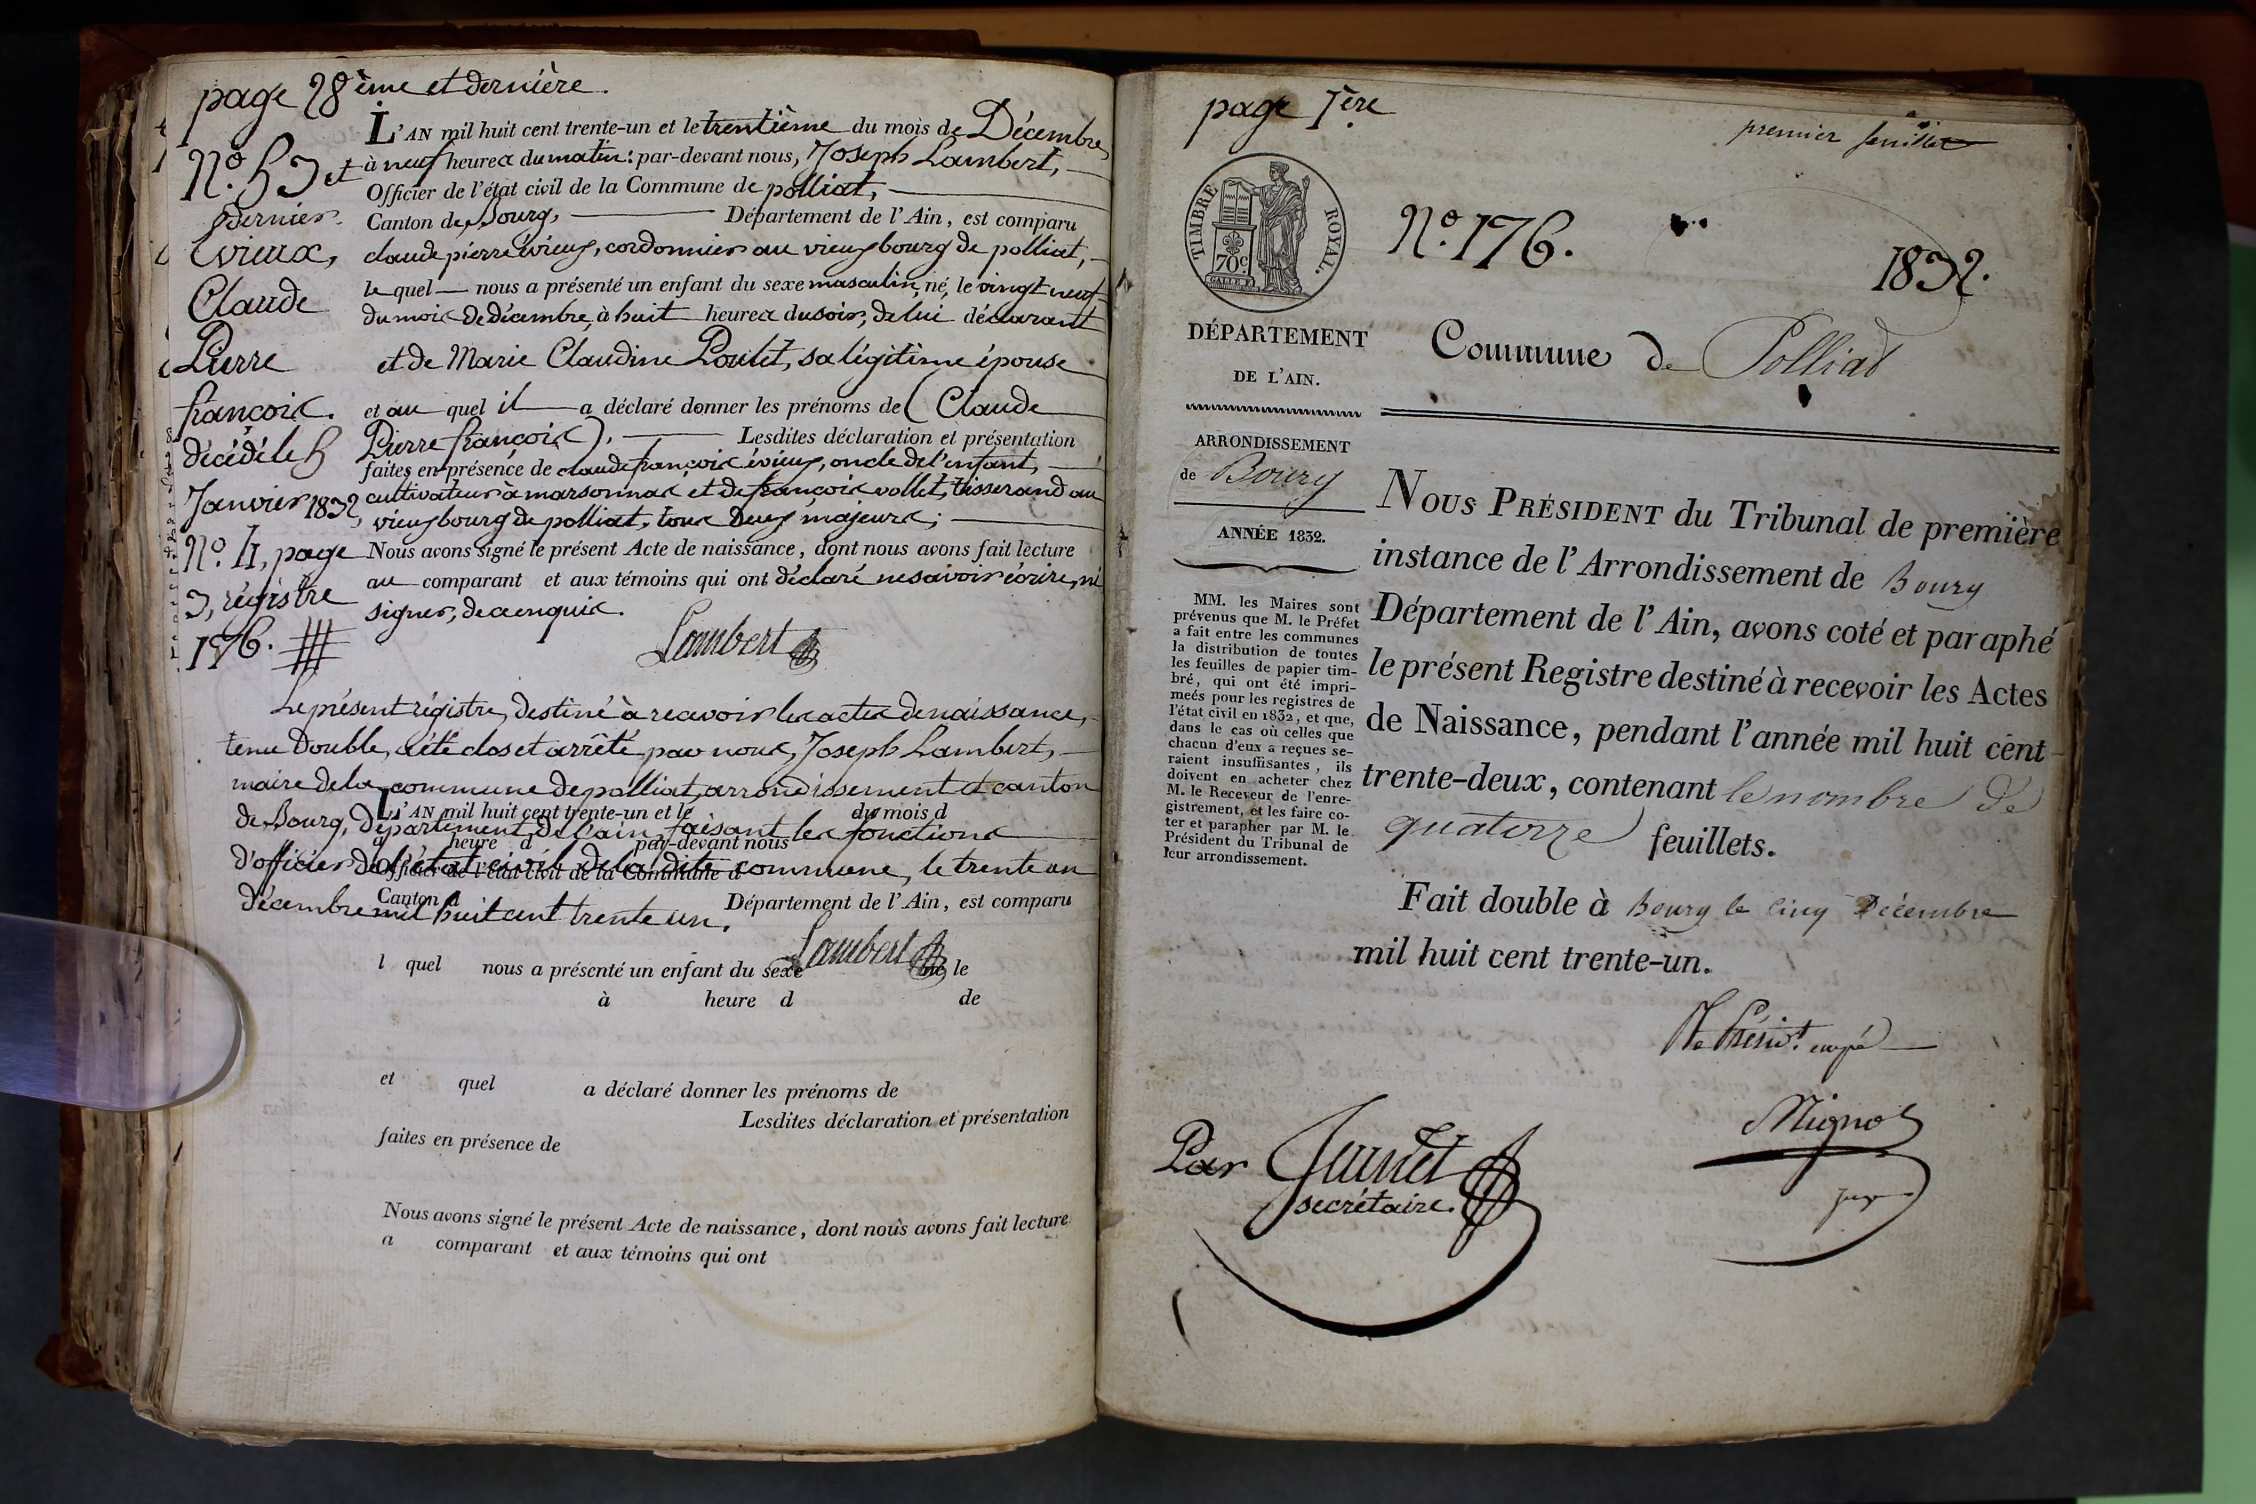 page 28ème et dernière.
L'AN mil huit cent trente-un et le trentième du mois de Décembre,
à neuf heures du matin: par-devant nous, Joseph Lambert,
Officier de l'état civil de la Commune de polliat,
Canton de Bourg, Département de l'Ain, est comparu
claude pierre évieux, cordonnier au vieux bourg de polliat,
le quel nous a présenté un enfant du sexe masculin, né, le vingt neuf
du mois de décembre, à huit heures du soir, de lui déclarant
et de Marie Claudine Poulet, sa légitime épouse
et au quel il a déclaré donner les prénoms de ( Claude
Pierre françois ). Lesdites déclaration et présentation
faites en présence de claude françois évieux, oncle de l'enfant,
cultivateur à marsonnas et de françois vollet, tisserand au
vieux bourg de polliat, tous deux majeurs;
Nous avons signé le présent Acte de naissance, dont nous avons fait lecture
au comparant et aux témoins qui ont déclaré ne savoir écrire, ni
signer, de ce enquis.
Lambert
N.º 53 et
dernier.
évieux,
Claude
Pierre
françois.
décédé le 5
Janvier 1832,
N.º 4, page
3, régistre
176.
Le présent régistre, destiné à recevoir les actes de naissance,
tenu double, a été clos et arrêté par nous, Joseph Lambert,
maire de la commune de polliat, arrondissement et canton
de Bourg, département de l'ain, faisant les fonctions
d'officier de l'état civil de la dite commune, le trente un
décembre mil huit cent trente un.
Lambert
L'AN mil huit cent trente-un et le du mois d
à heure d par-devant nous
Officier de l'état civil de la Commune d
Canton d Département de l'Ain, est comparu
l quel nous a présenté un enfant du sexe né le
à heure d de
et quel a déclaré donner les prénoms de
Lesdites déclaration et présentation
faites en présence de
Nous avons signé le présent Acte de naissance, dont nous avons fait lecture
a comparant et aux témoins qui ont
page 1ère
premier feuillet
TIMBRE ROYAL.
70c
N.º 176.
1832.
DÉPARTEMENT
DE L'AIN.
Commune de Polliat
ARRONDISSEMENT
de Bourg
ANNÉE 1832.
MM. les Maires sont
prévenus que M. le Préfet
a fait entre les communes
la distribution de toutes
les feuilles de papier tim-
bré, qui ont été impri-
meés pour les registres de
l'état civil en 1832, et que,
dans le cas où celles que
chacun d'eux a reçues se-
raient insuffisantes, ils
doivent en acheter chez
M. le Receveur de l'enre-
gistrement, et les faire co-
ter et parapher par M. le
Président du Tribunal de
leur arrondissement.
NOUS PRÉSIDENT du Tribunal de première
instance de l'Arrondissement de Bourg
Département de l'Ain, avons coté et paraphé
le présent Registre destiné à recevoir les Actes
de Naissance, pendant l'année mil huit cent
trente-deux, contenant le nombre de
quatorze feuillets.
Fait double à Bourg le cinq Décembre
mil huit cent trente-un.
Le Présidt. empé
Par
secrétaire.